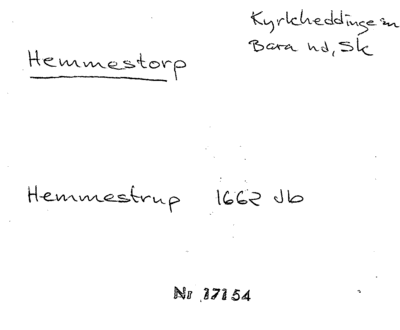 Kyrkheddinge sn
Bara hd, Sk
Hemmestorp
Hemmestrup 1662 Jb
Nr 17154